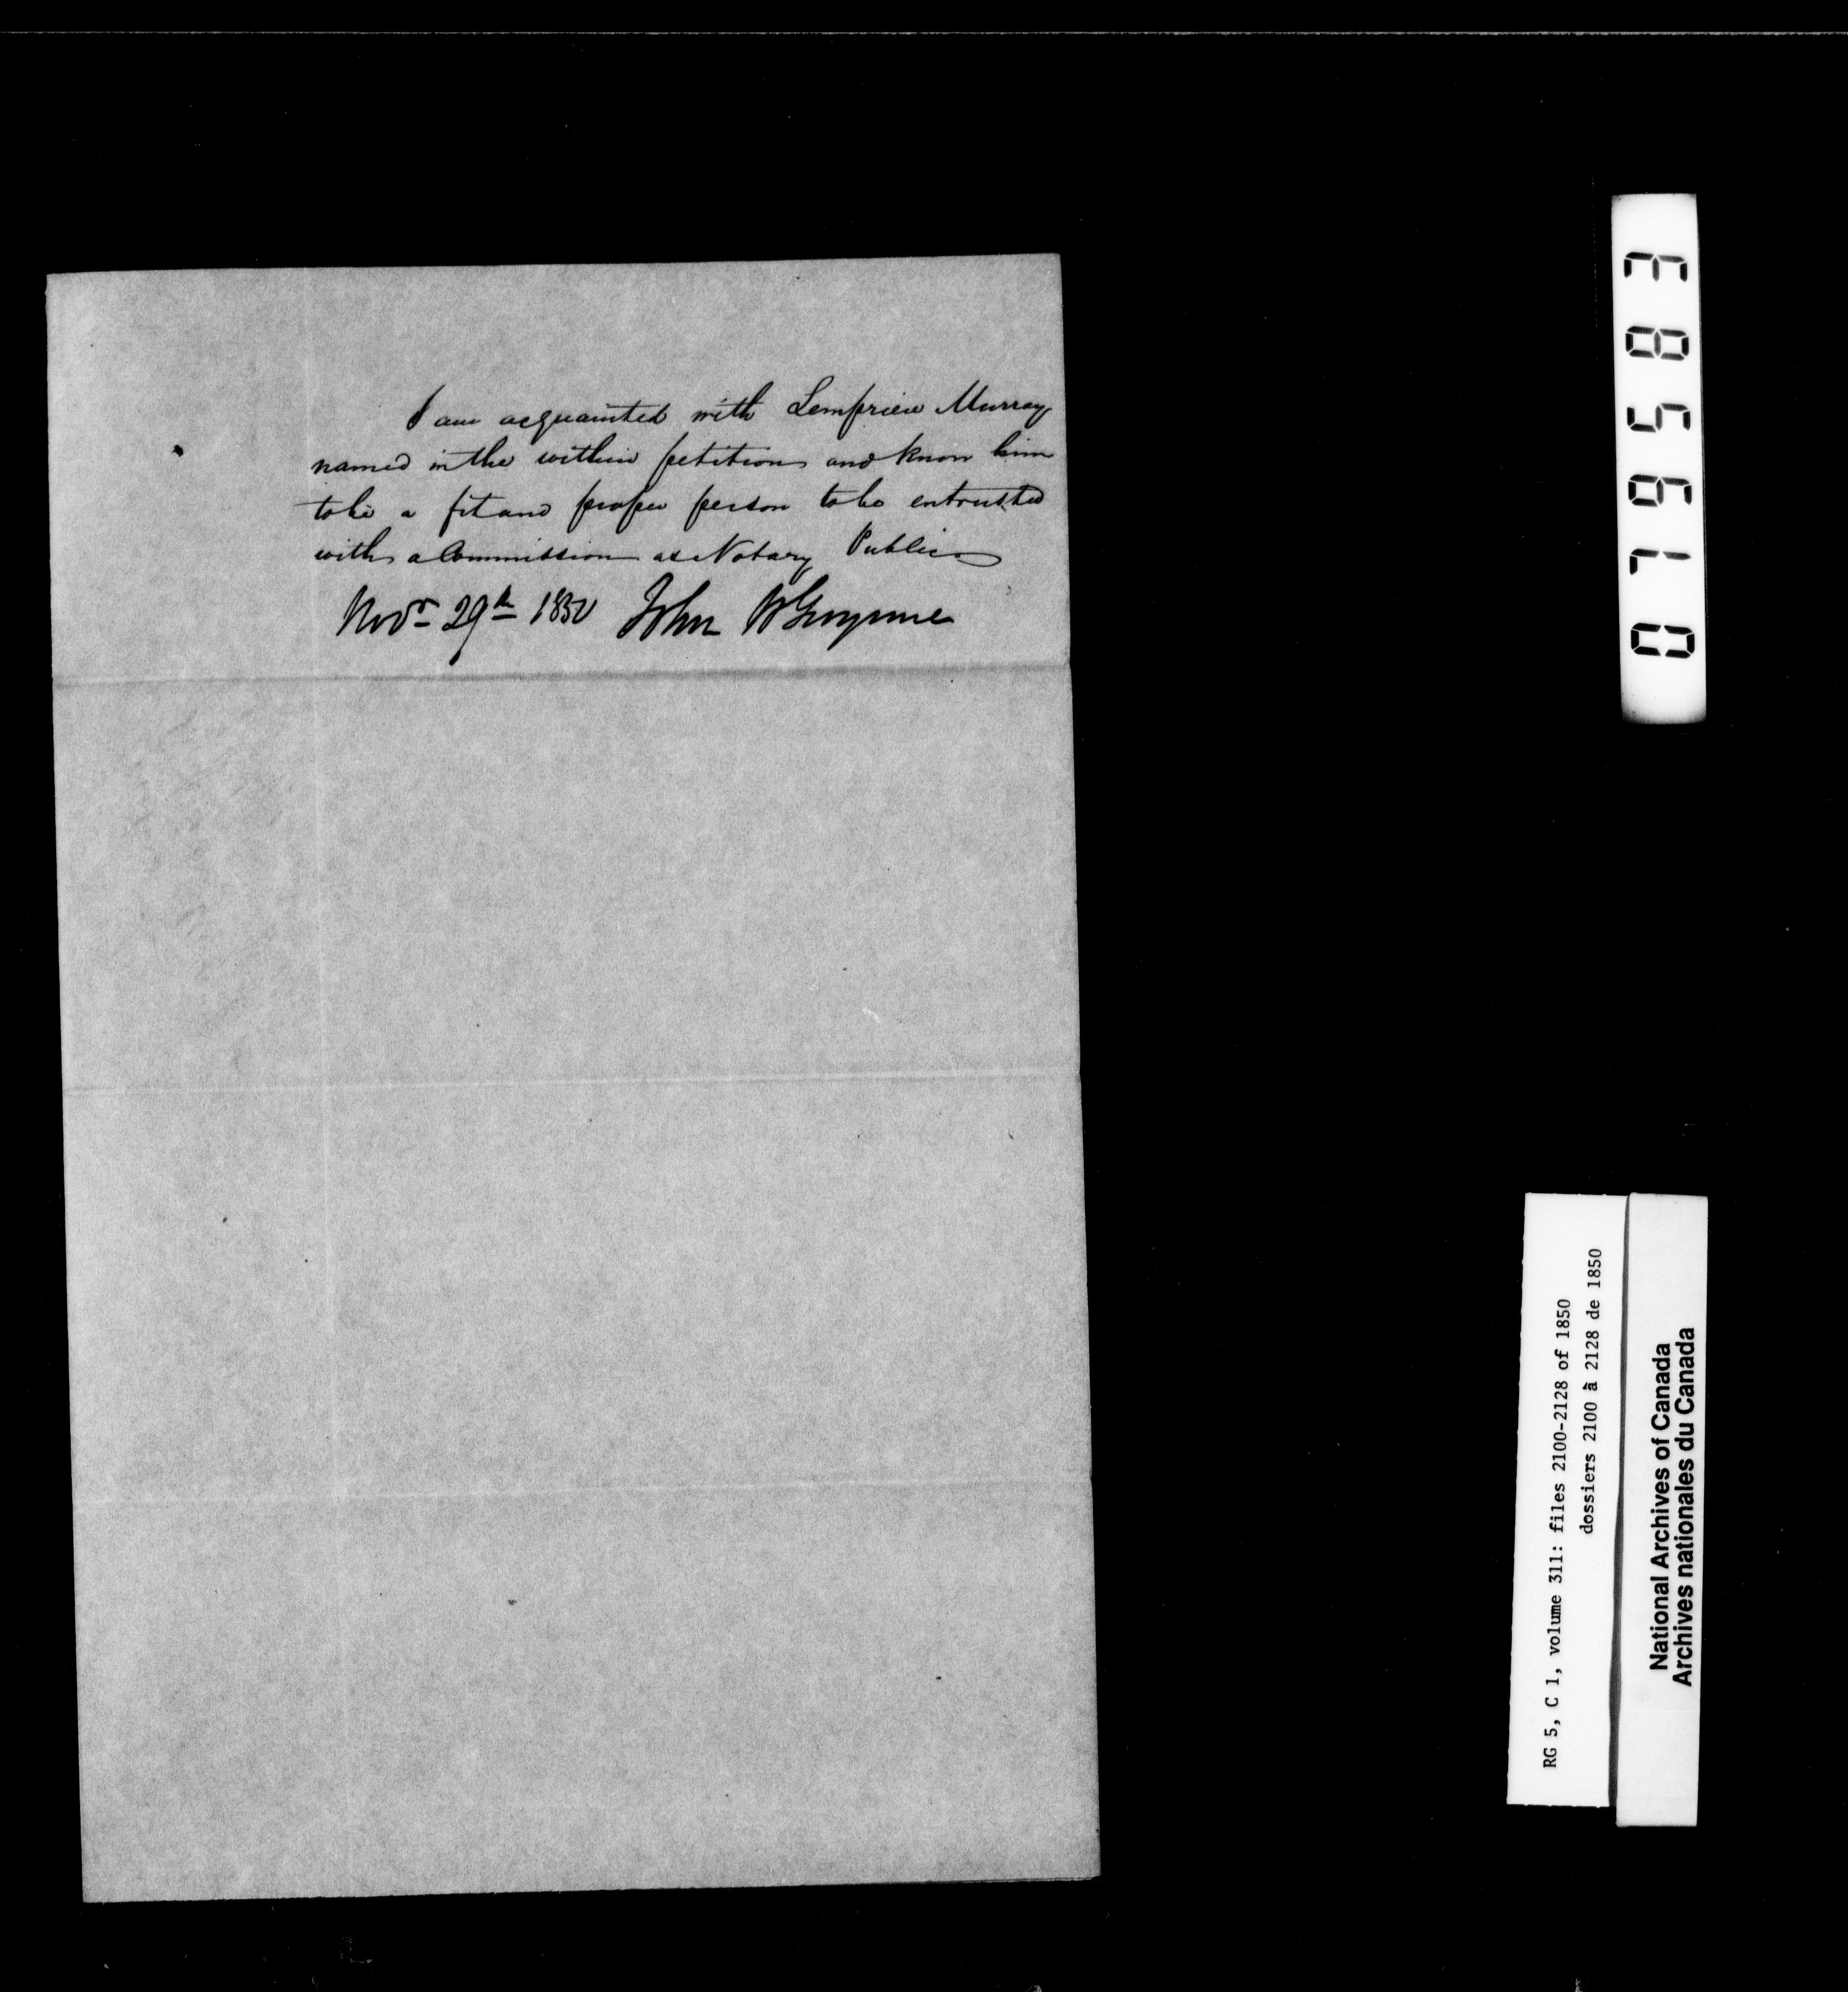 I am acquainted with Lempriere Murray
named in the within petition and know him
to be a fit and proper person to be entrusted
with a Commission as Notary Public
Novr 29th 1850 John W Gwynne
071658 3
RG 5, C 1, volume 311: files 2100-2128 of 1850
dossiers 2100 à 2128 de 1850
National Archives of Canada
Archives nationales du Canada